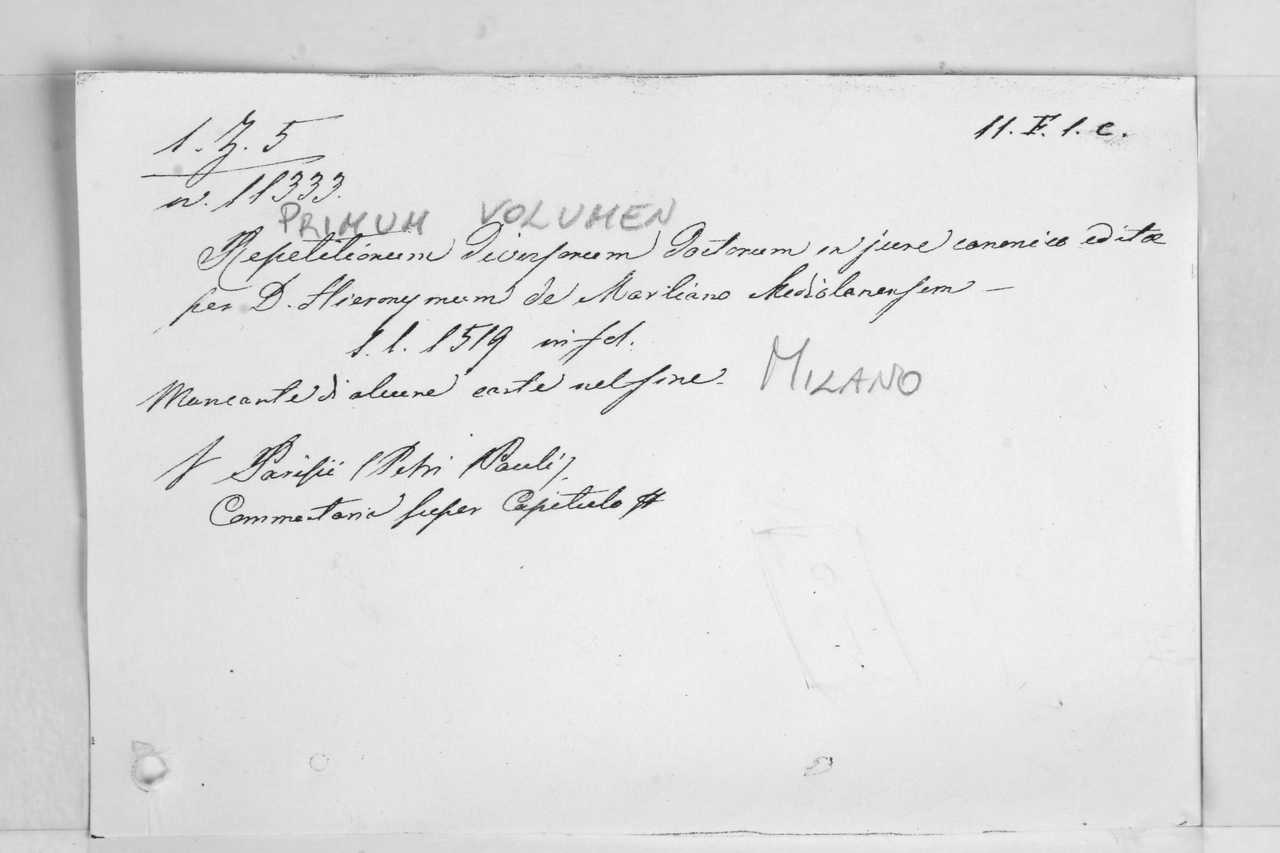 1. Z. 5
11. F. 1. c.
n. 11333.
PRIMUM VOLUMEN
Repetitionum diversorum doctorum in jure canonico editæ
per D. Hieronymum de Marliano Mediolanensem –
s. l. 1519 in fol.
Mancante di alcune carte nel fine.
MILANO
Parisii (Petri Pauli)
Commentaria super Capitulo